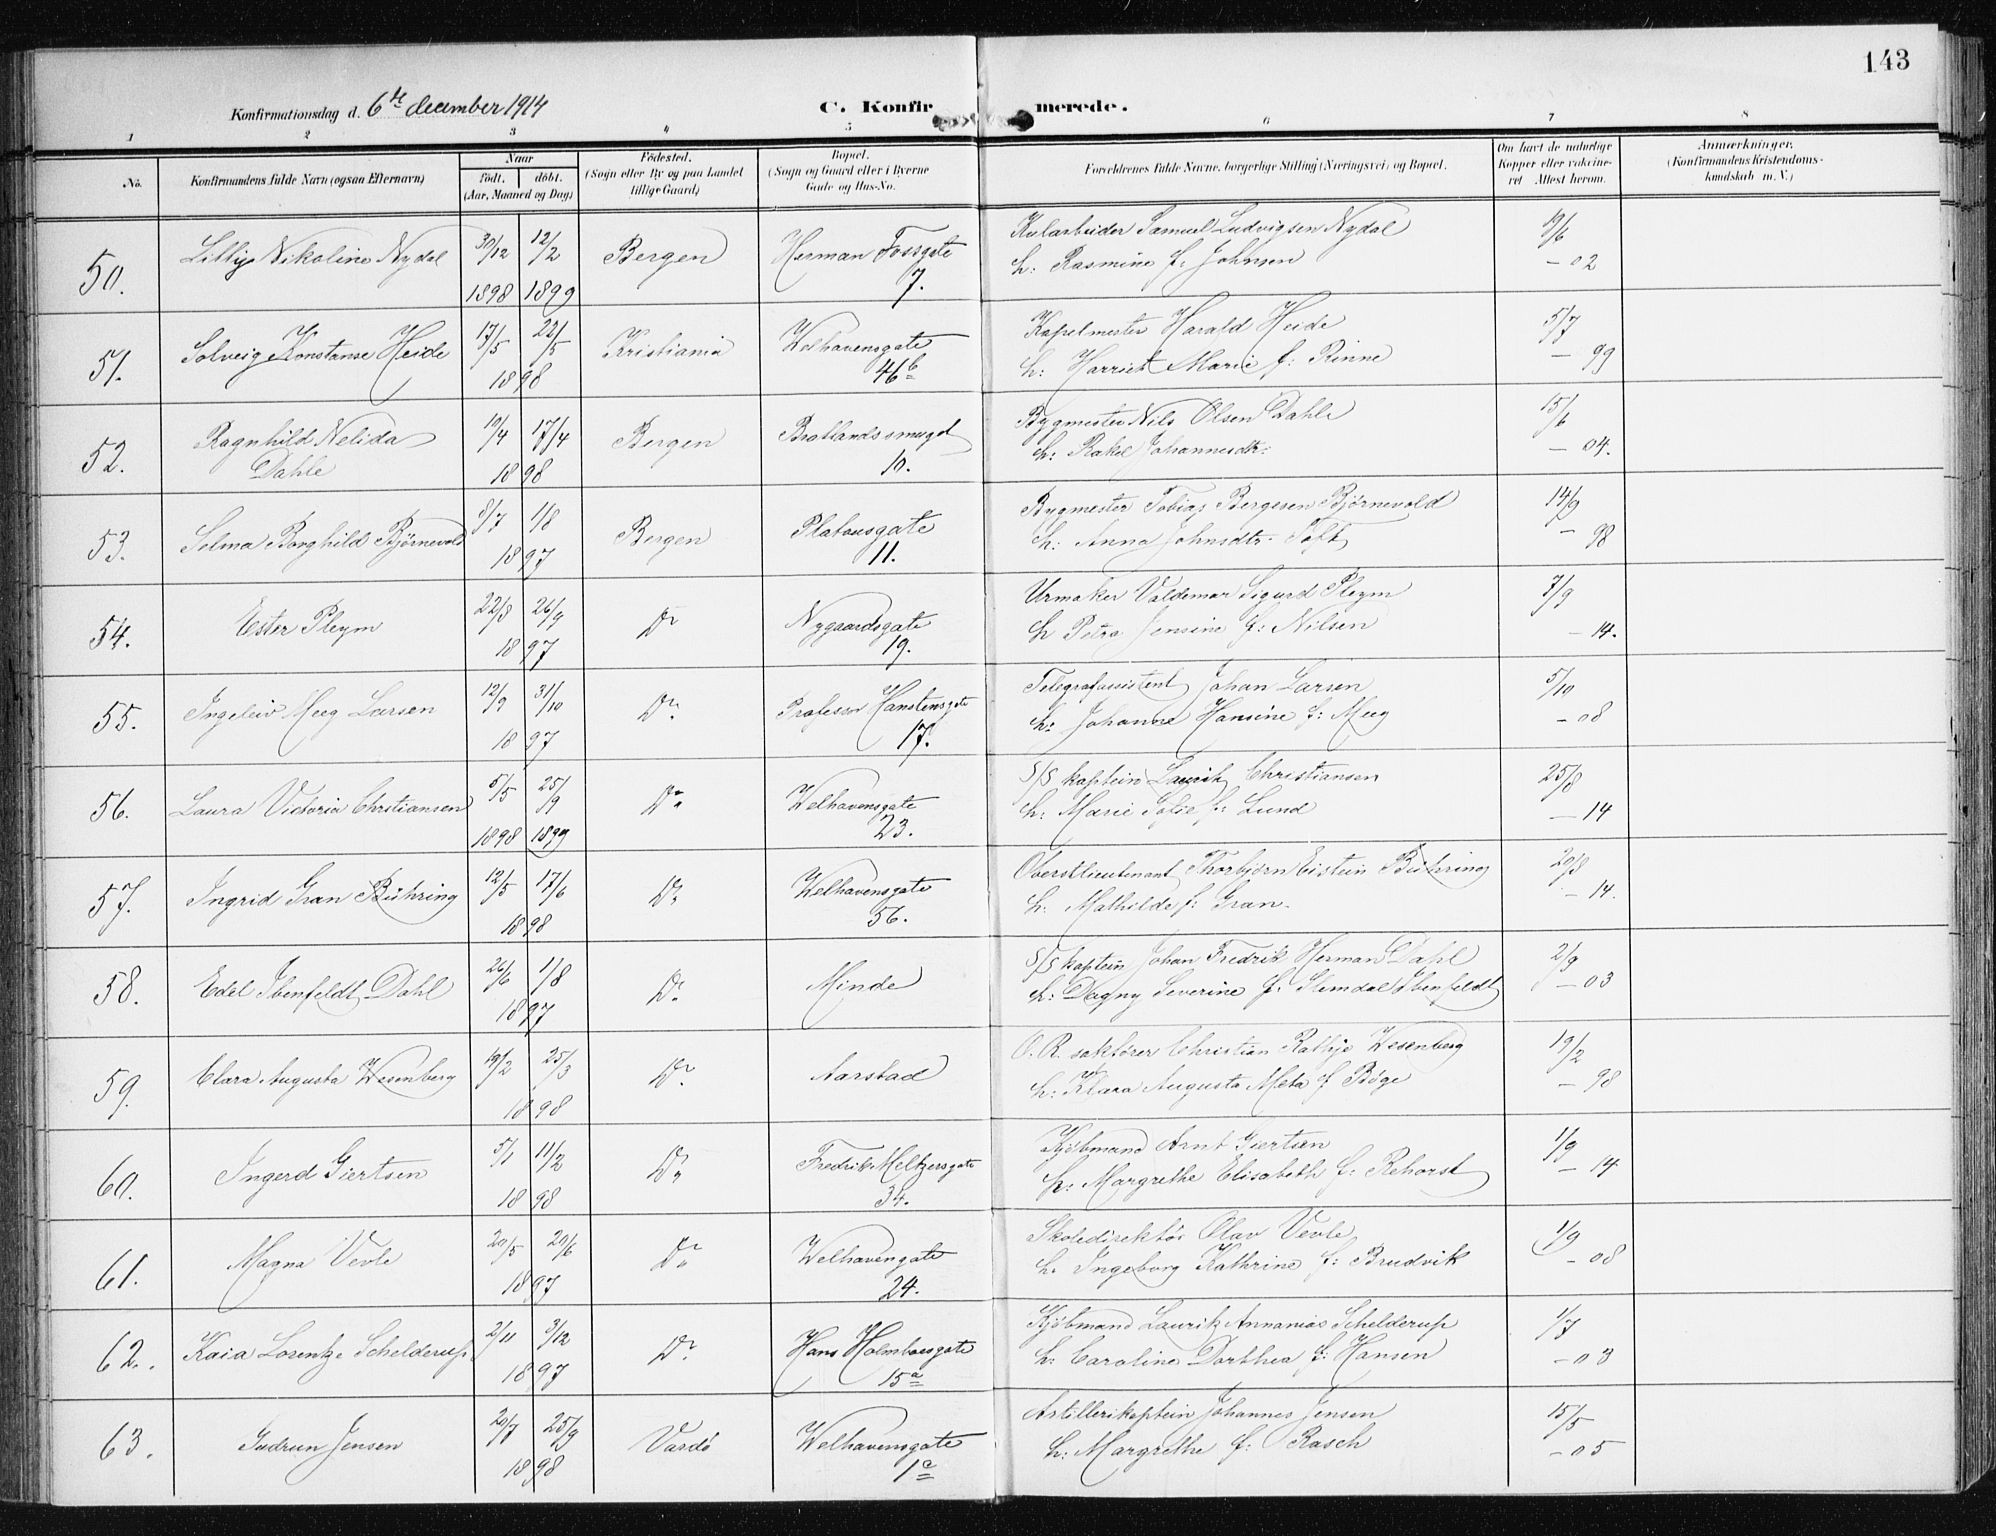 143
Konfirmationsdag d. 6te december 1914
C. Konfirmerede.
1 2 3 4 5 6 7 8
No. Konfirmandens fulde Navn (ogsaa Efternavn)
Naar
født. døbt.
(Aar, Maaned og Dag)
Fødested.
(Sogn eller By og paa Landet
tillige Gaard)
Bopæl.
(Sogn og Gaard eller i Byerne
Gade og Hus-No.
Forældrenes fulde Navne, borgerlige Stilling (Næringsvei) og Bopæl.
Om havt de naturlige
Kopper eller vakcine-
ret Attest herom.
Anmærkninger.
(Konfirmandens Kristendoms-
kundskab m. V.)
50. Lilly Nikoline Nydal 30/12 12/2 Bergen Herman Fossgate Kularbeider Samuel Ludvigsen Nydal 19/6
1898 1899 7. h: Rasmine f: Johnsen – 02
51. Solveig Konstanse Heide 17/5 22/5 Kristiania Welhavensgate Kapelmester Harald Heide 5/7
1898 46b h: Harriet Marie f: Rinne – 99
52. Ragnhild Nelida 10/4 17/4 Bergen Bratlandssmuget Bygmester Nils Olsen Dahle 15/6
Dahle 1898 10. h: Rakel Johannesdtr: – 04.
53. Selma Borghild Bjørnevold 8/7 1/8 Bergen Platousgate Bygmester Tobias Bergesen Bjørnevold 14/9
1897 11. h: Anna Johnsdtr. Toft – 98
54. Ester Pleym 22/8 26/9 Do Nygaardsgate Urmaker Valdemar Sigurd Pleym 7/9
1897 19. h Petra Jensine f: Nilsen – 14.
55. Ingeleiv Meeg Larsen 12/9 31/10 Do. Professor Hanstensgate Telegrafassistent Johan Larsen 5/10
1897 17. h: Johanne Hansine f: Meeg – 08
56. Laura Victoria Christiansen 5/5 25/9 Do. Welhavensgate S/S kaptein Lauritz Christiansen 25/8
1898 1899 23. h: Marie Sofie f: Lund – 14
57. Ingrid Gran Bühring 12/5 17/6 Do. Welhavensgate Oberstlieutenant Thorbjørn Eistein Bühring 20/8
1898 56. h: Mathilde f: Gran. – 14.
58. Edel Ibenfeldt Dahl 26/6 1/8 Do. Minde S/S kaptein Johan Fredrik Herman Dahl 2/9
1897 h: Dagny Severine f: Slemdal Ibenfeldt – 03
59. Clara Augusta Wesenberg 19/2 25/3 Do. Aarstad O. R. sakfører Christian Rathje Wesenberg 19/2
1898 h: Klara Augusta Meta f Bøge – 98
60. Ingerd Giertsen 5/1 11/2 Do. Fredrik Meltzersgate Kjøbmand Arnt Giertsen 1/9
1898 34. h: Margrethe Elisabeth f: Rehorst – 14
61. Magna Vevle 20/5 20/6 Do. Welhavengate Skoledirektør Olav Vevle 1/9
1897 24. h. Ingeborg Kathrine f: Brudvik – 08
62. Kaia Lorentze Schelderup 2/11 3/12 Do. Hans Holmboesgate Kjøbmand Lauritz Annanias Schelderup 1/7
1897 15a h: Caroline Dorthea f: Hansen – 03
63. Gudrun Jensen 20/7 25/9 Vardø Welhavensgate Artillerikaptein Johannes Jensen 15/5
1898 1c h: Margrethe f: Rasch – 05